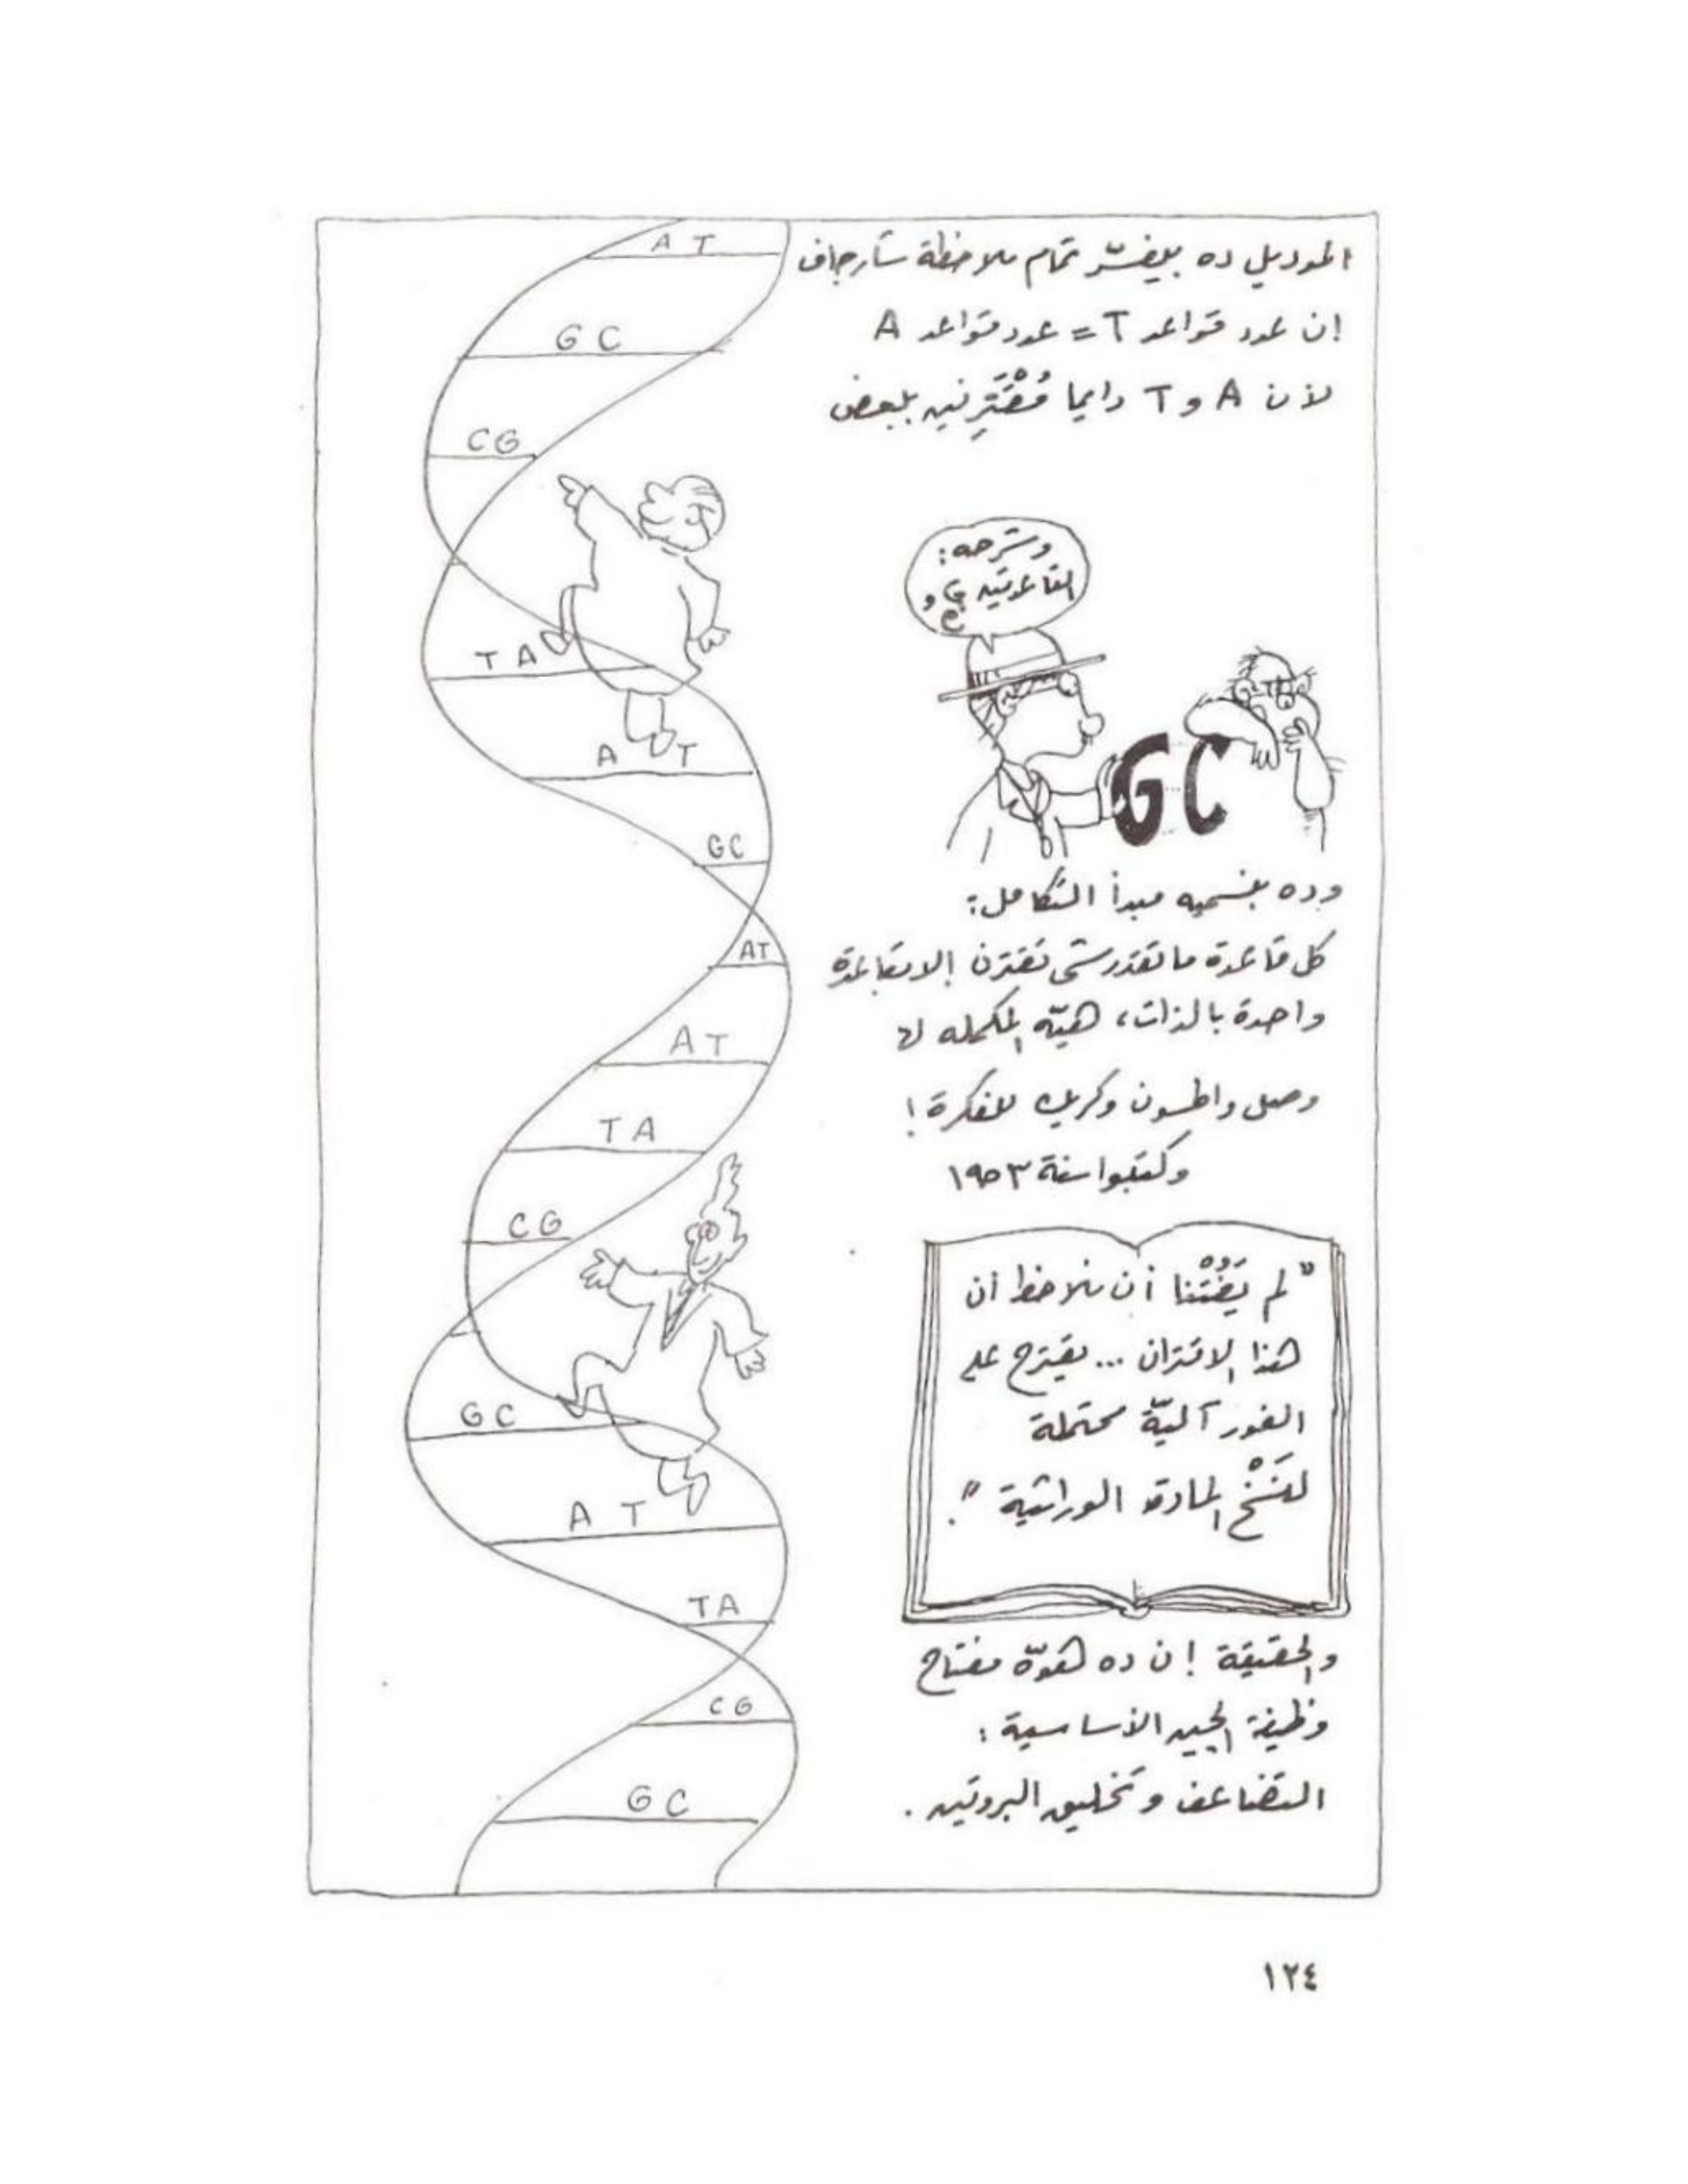 الموديل ده بيفسّر تمام ملاحظة شارجاف
إن عدد قواعد T = عدد قواعد A
لأن A و T دايما مُقْتَرِنين ببعض
وشرحه:
القاعدتين
و
G C
وده بنسميه مبدأ التكامل:
كل قاعدة ما تقدرشي تقترن إلا بقاعدة
واحدة بالذات، هيّه المكمله لها
وصل واطسون وكريك للفكرة!
وكتبوا سنة ١٩٥٣
"لم يَفُتْنا أن نلاحظ أن
هذا الاقتران ... يقترح على
الفور آليّة محتملة
لنَسْخ المادة الوراثية".
والحقيقة إن ده هوّه مفتاح
وظيفة الجين الأساسية:
التضاعف وتخليق البروتين.
A T
G C
C G
T A
A T
G C
A T
A T
T A
C G
G C
A T
T A
C G
G C
١٢٤